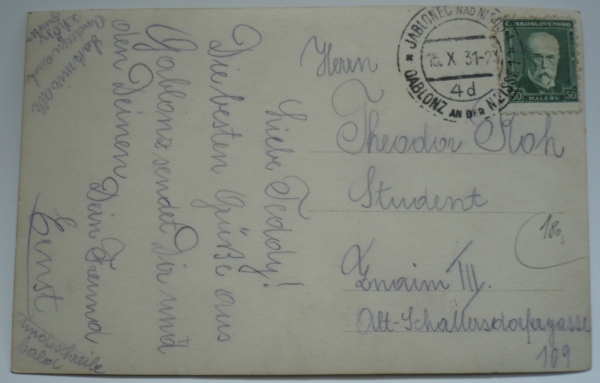 Liebe Teddy!
Die besten Grüße aus
Gablonz sendet Dir und
den Deinen
Dein Freund
Ernst
Herrn
Theodor
Student
Znaim III.
Alt-Schallersdorfergasse
109
180,
JABLONEC NAD NISOU
15.X 31-
4d
GABLONZ AN DER NEISSE
ČESKOSLOVENSKO
50 50